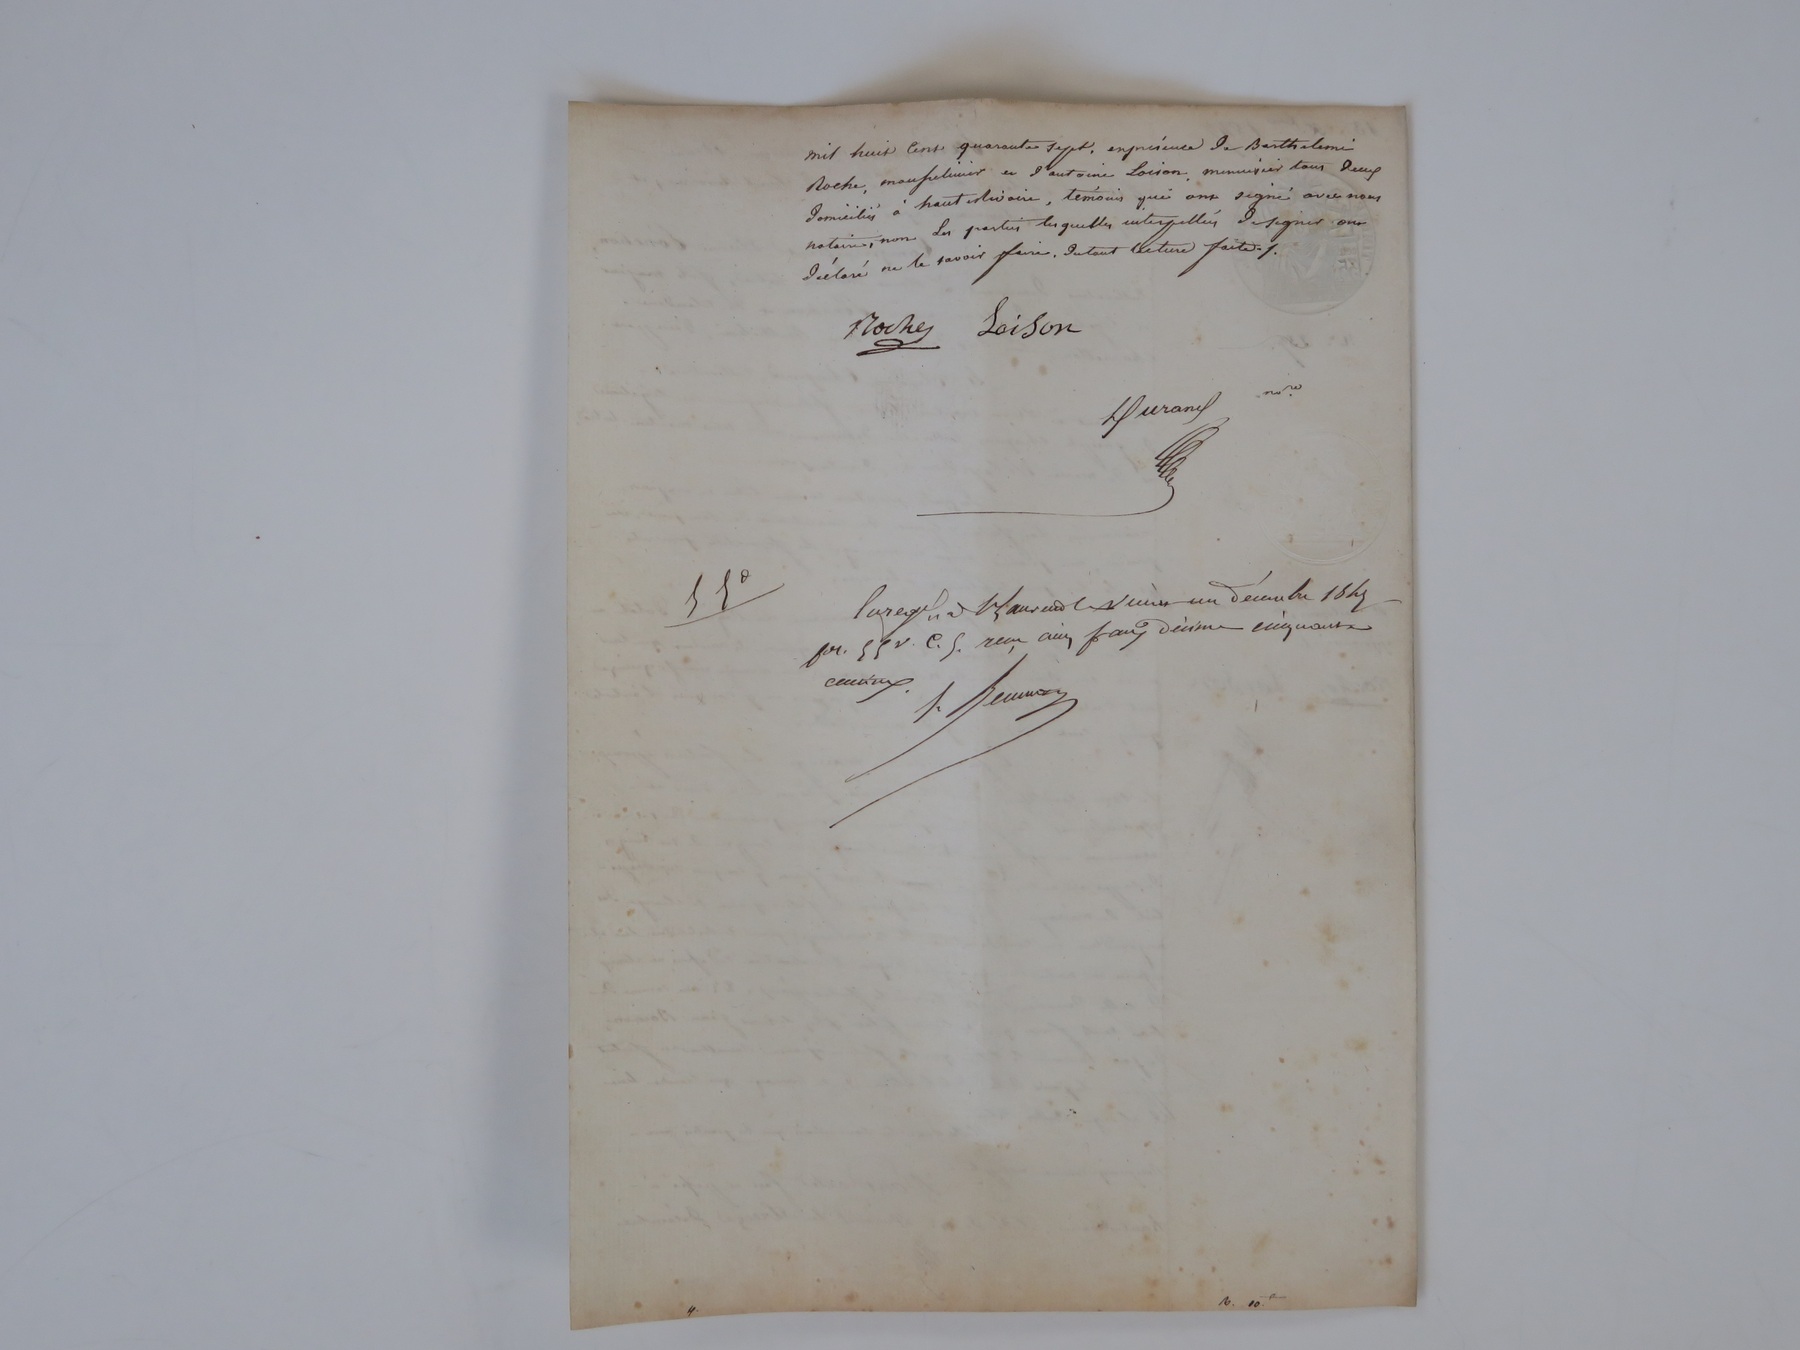 mil huit cent quarante sept, en présence de Barthelemi
Roche, et d'antoine Loison, menuisier tous deux
domiciliés à hauterivoire, témoins qui ont signé avec nous
notaire, non les parties lesquelles interpellées de signer ont
déclaré ne le savoir faire. Du tout lecture faite./.
Roche Loison
Durand nore
55 c
Enregé à le vingt un décembre 1847
fo. 55 v. C. 5. reçu cinq francs décime cinquante
centimes.
4.
R. 10